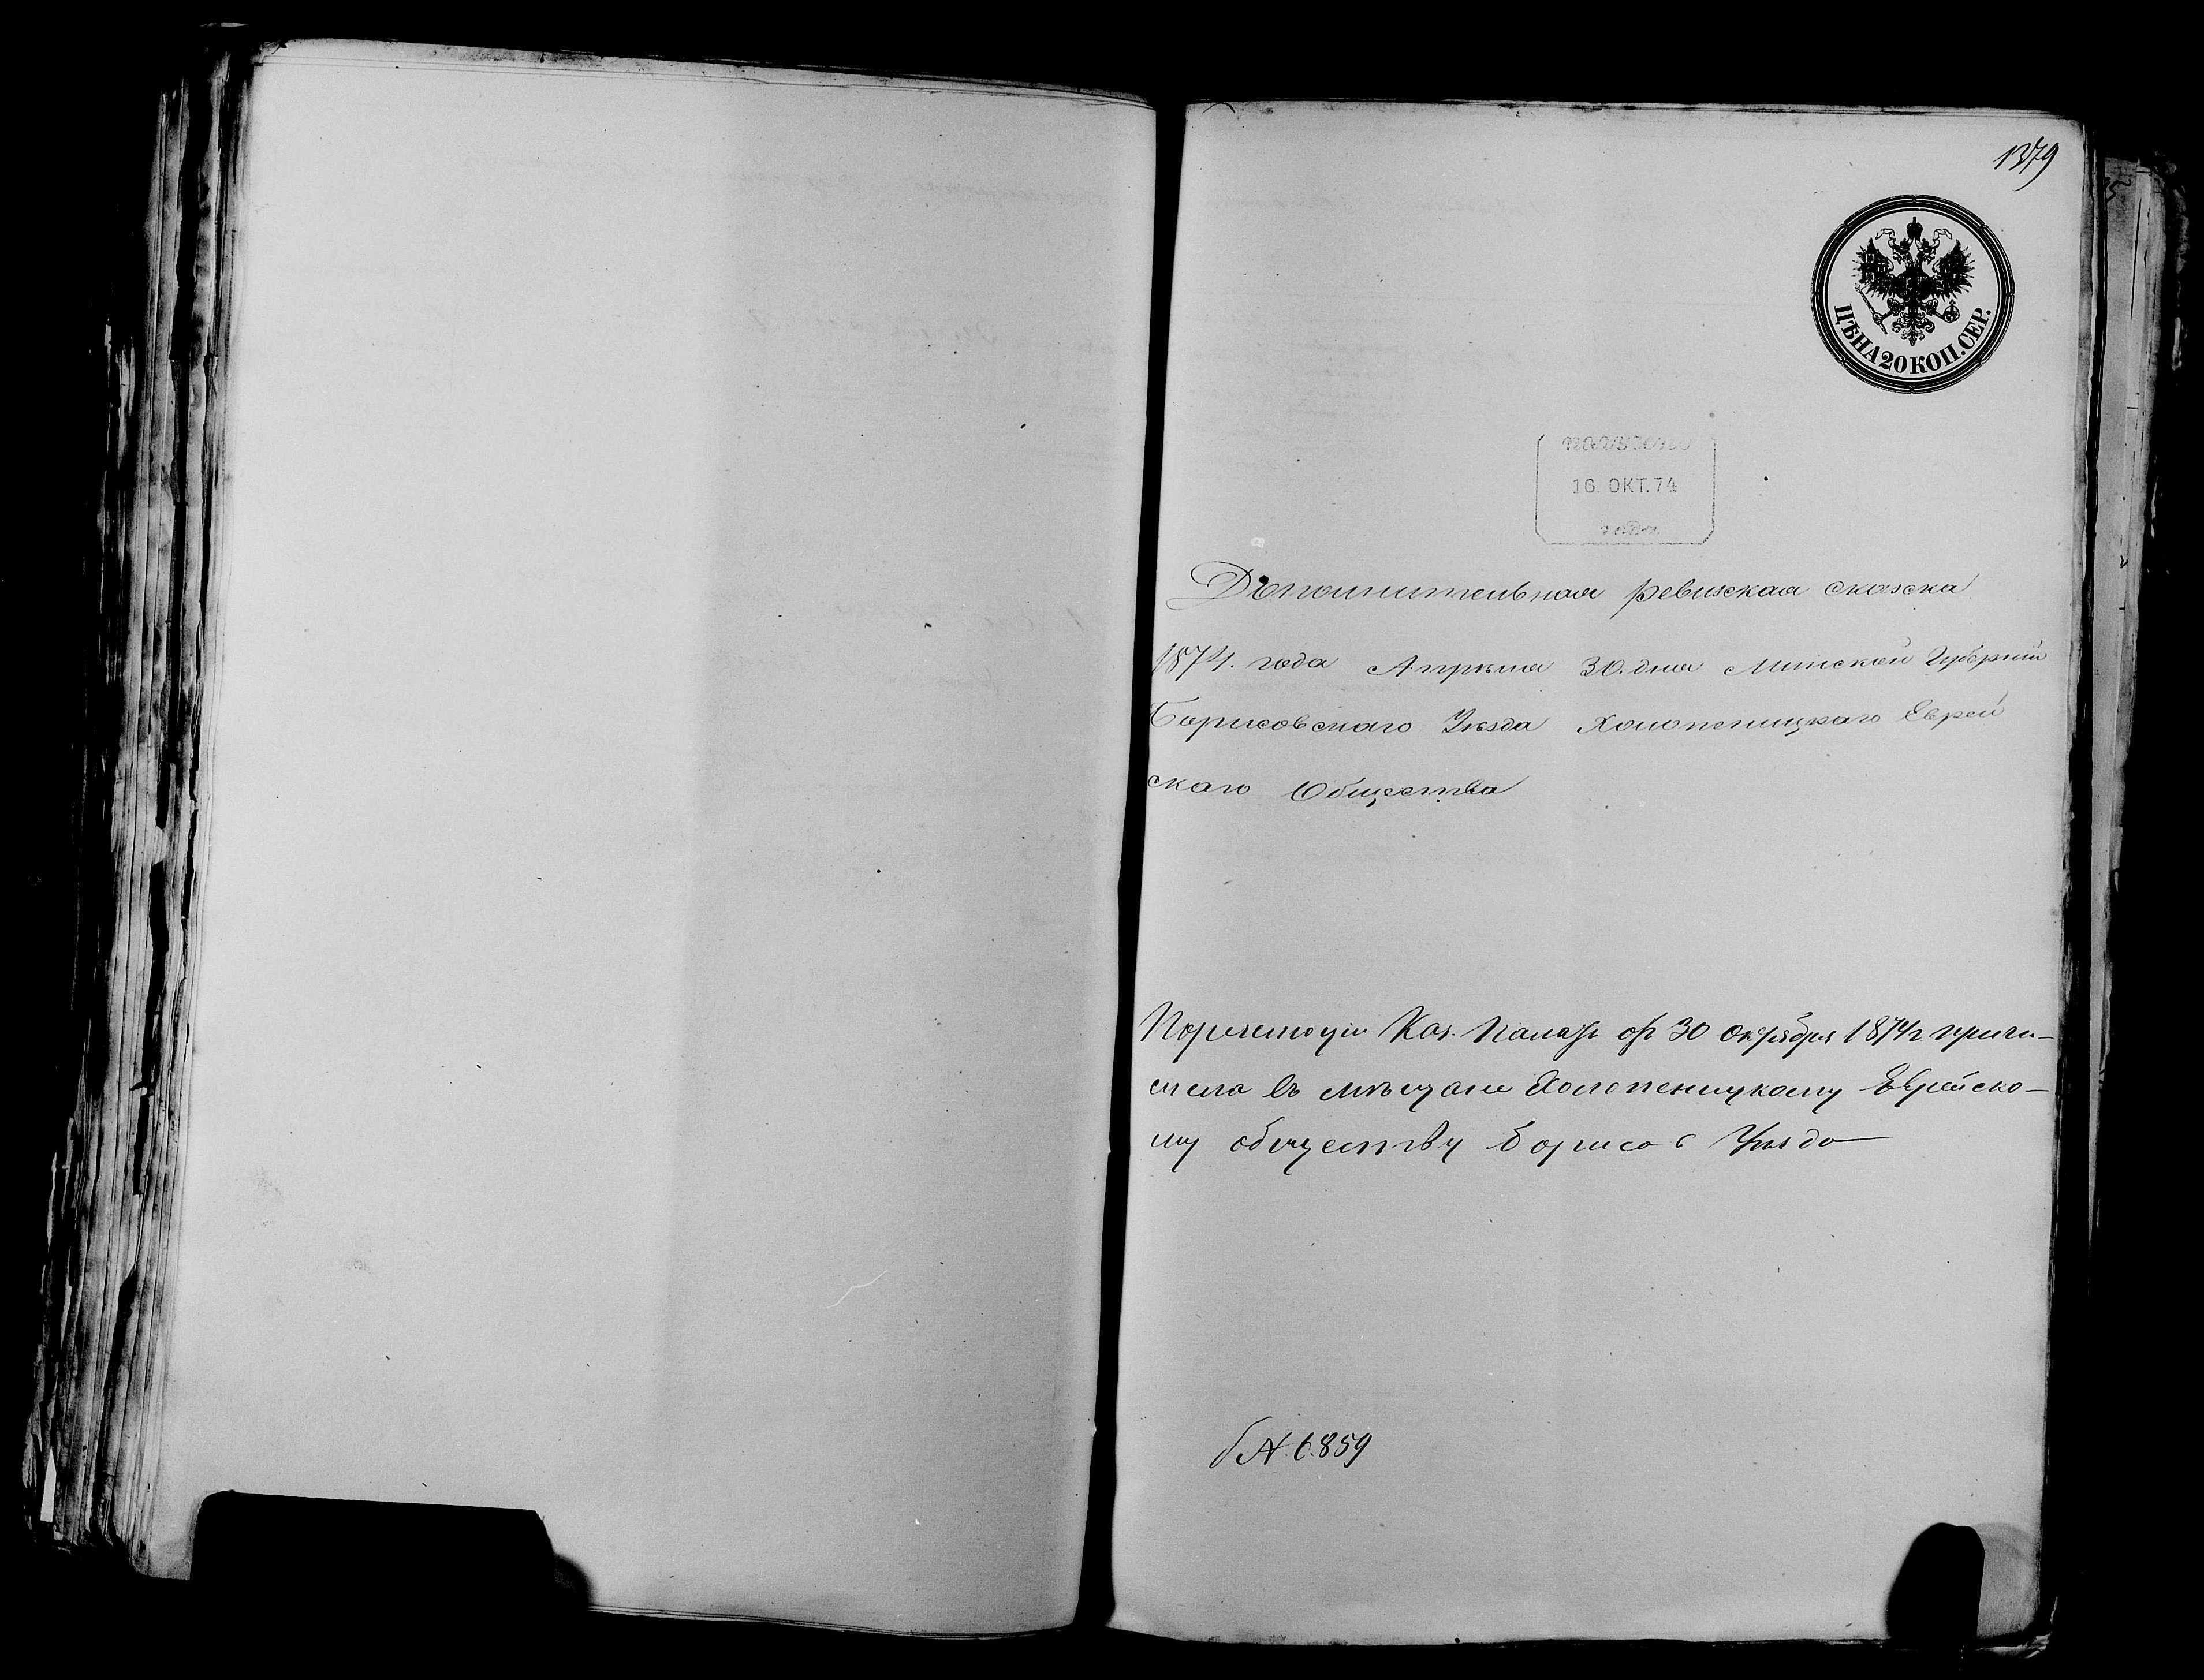 1379
ЦѢНА 20 КОП. СЕР.
получено
16. ОКТ. 74
года
Дополнительная ревизская сказка
1874. года Апрѣля 30. дня Минской Губерніи
Борисовскаго Уѣзда Холопеницкаго Еврей
скаго Общества
По резолюціи Каз. Палаты отъ 30 октября 1874 г причи-
слена въ мѣщане Холопеницкому Еврейско-
му обществу Борисов Уѣзда
№ 6859